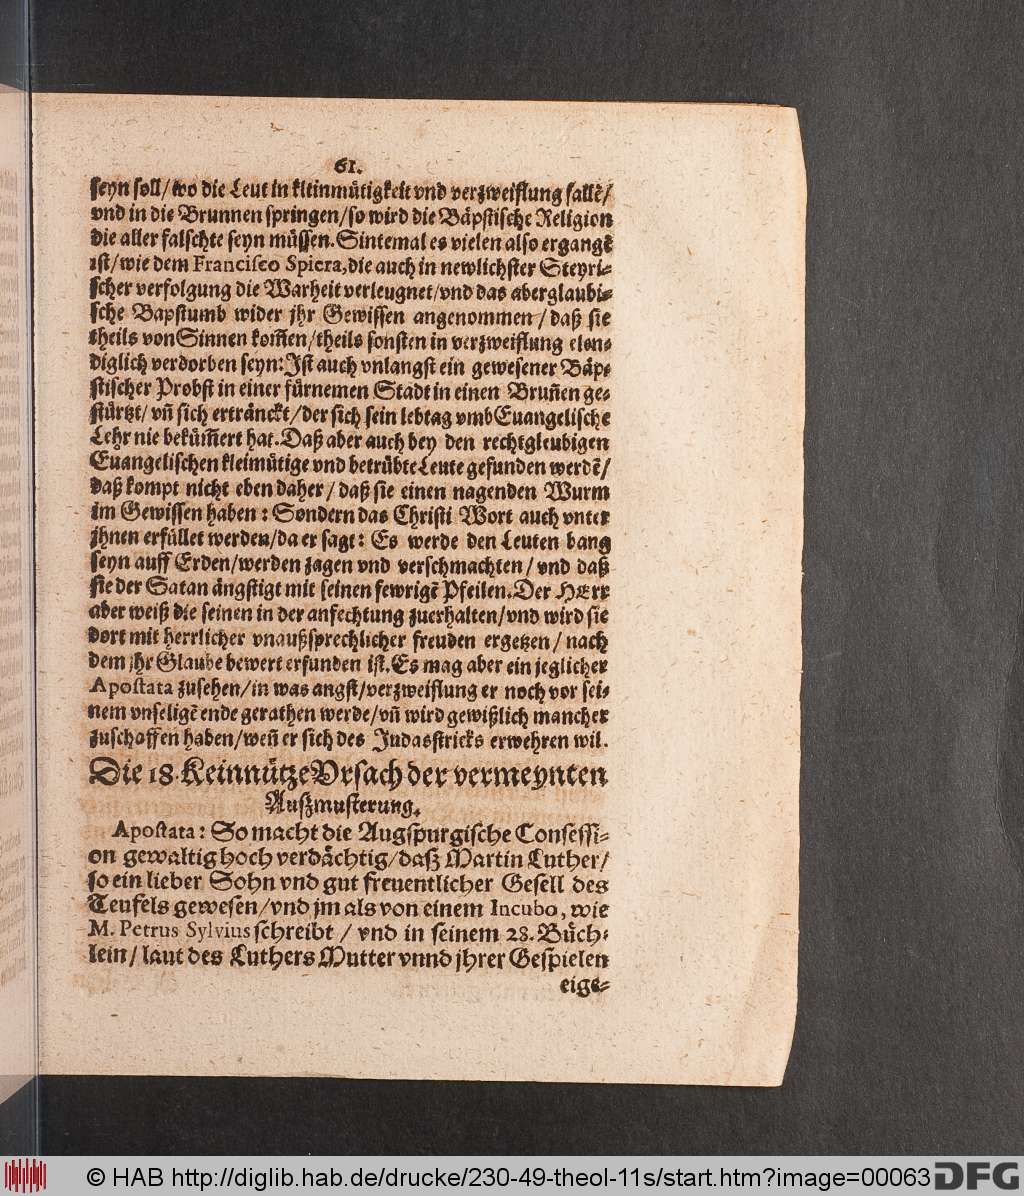 61.
seyn soll/ wo die Leut in kltinmütigkeit vnd verzweiflung fallẽ/
vnd in die Brunnen springen/ so wird die Bäpstische Religion
die aller falschte seyn müssen. Sintemal es vielen also ergangẽ
ist/ wie dem Francisco Spiera, die auch in newlichster Steyri-
scher verfolgung die Warheit verleugnet/ vnd das aberglaubi-
sche Bapstumb wider jhr Gewissen angenommen/ daß sie
theils von Sinnen kom̃en/ theils sonsten in verzweiflung elen-
diglich verdorben seyn: Ist auch vnlangst ein gewesener Bäp-
stischer Probst in einer fürnemen Stadt in einen Brun̄en ge-
stürtzt/ vn̄ sich ertränckt/ der sich sein lebtag vmb Euangelische
Lehr nie bekūm̃ert hat. Daß aber auch bey den rechtgleubigen
Euangelischen kleimütige vnd betrübte Leute gefunden werdẽ/
daß kompt nicht eben daher/ daß sie einen nagenden Wurm
im Gewissen haben: Sondern das Christi Wort auch vnter
jhnen erfüllet werden/ da er sagt: Es werde den Leuten bang
seyn auff Erden/ werden zagen vnd verschmachten/ vnd daß
sie der Satan ängstigt mit seinen fewrigẽ Pfeilen. Der HErr
aber weiß die seinen in der anfechtung zuerhalten/ vnd wird sie
dort mit herrlicher vnaußsprechlicher freuden ergetzen/ nach
dem jhr Glaube bewert erfunden ist. Es mag aber ein jeglicher
Apostata zusehen/ in was angst/ verzweiflung er noch vor sei-
nem vnseligẽ ende gerathen werde/ vn̄ wird gewißlich mancher
zuschaffen haben/ wen̄ er sich des Judasstricks erwehren wil.
Die 18. Keinnütze Vrsach der vermeynten
Außmusterung.
Apostata: So macht die Augspurgische Confessi-
on gewaltig hoch verdächtig/ daß Martin Luther/
so ein lieber Sohn vnd gut freuentlicher Gesell des
Teufels gewesen/ vnd jm als von einem Incubo, wie
M. Petrus Sylvius schreibt/ vnd in seinem 28. Büch-
lein/ laut des Luthers Mutter vnnd jhrer Gespielen
eige-
© HAB http://diglib.hab.de/drucke/230-49-theol-11s/start.htm?image=00063
DFG